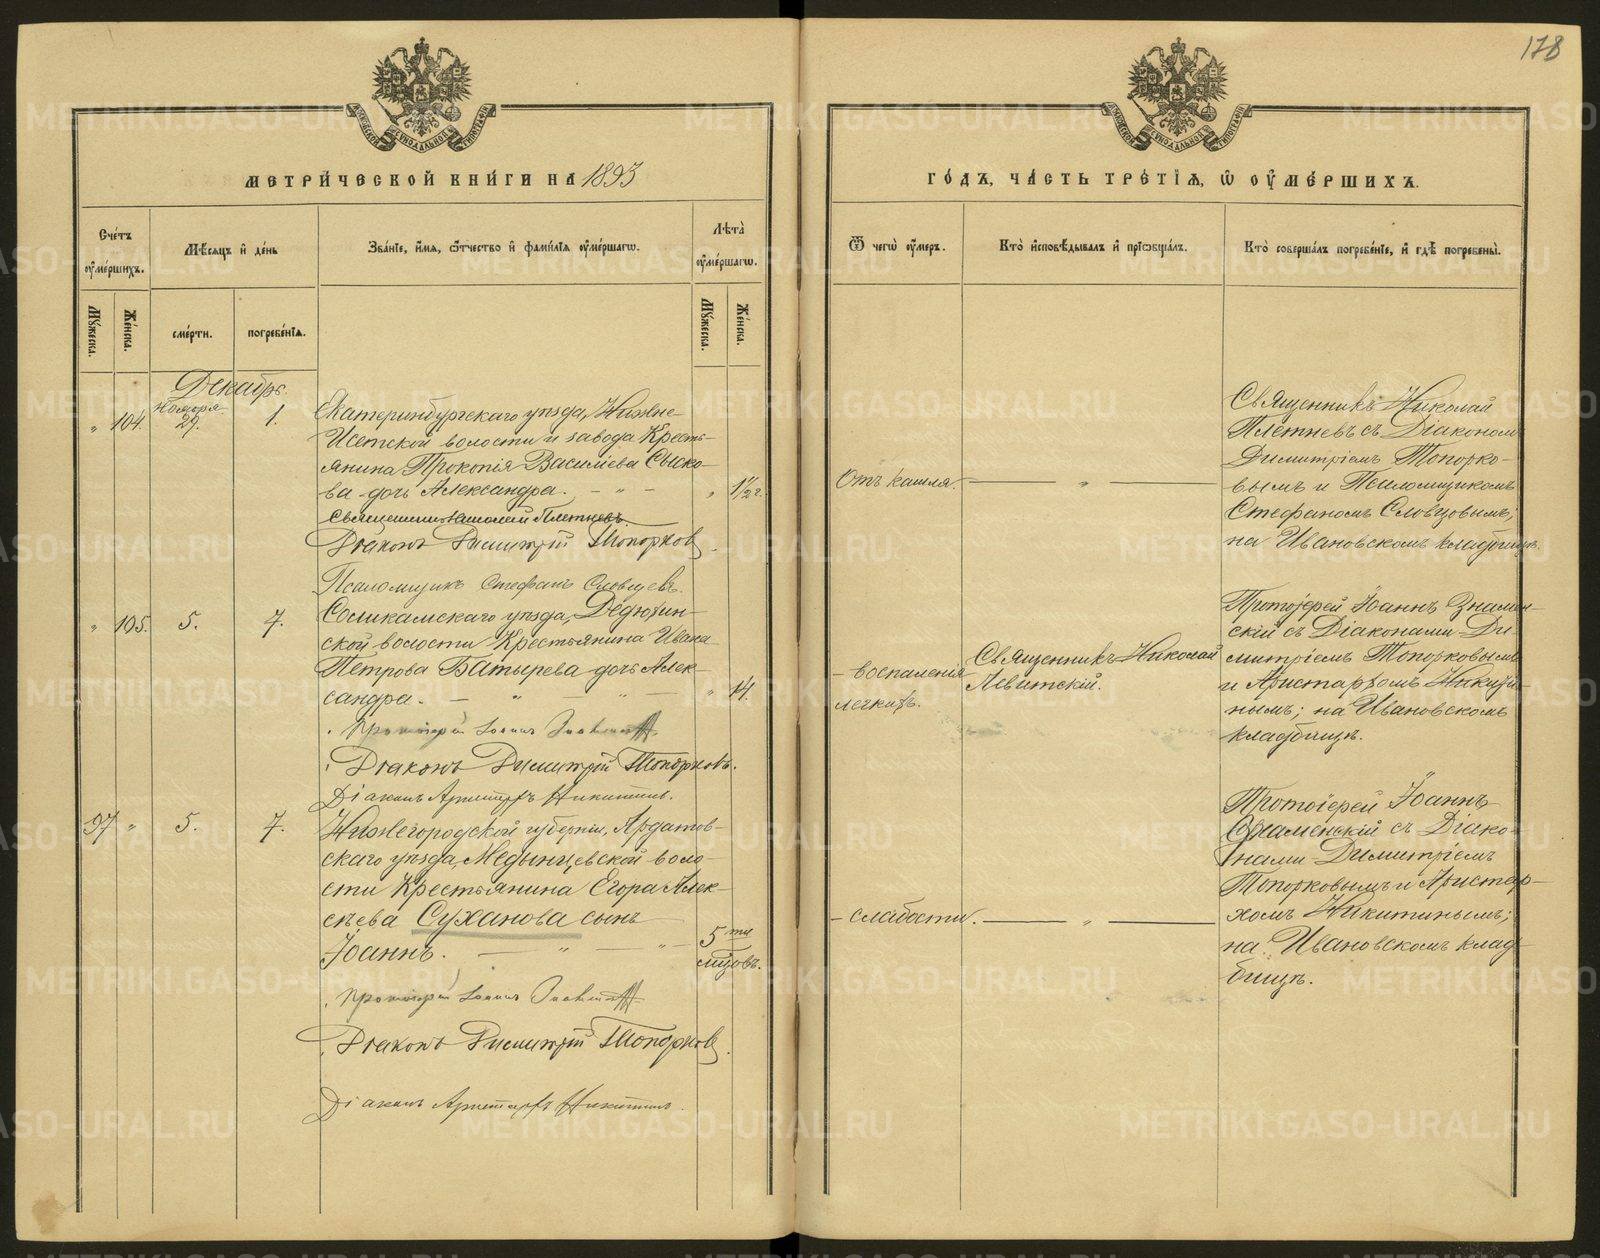 178
МЕТРИ́ЧЕСКОЙ КНИ́ГИ НА 1893
ГО́ДЪ, ЧА́СТЬ ТРЕ́ТІѦ, Ѿ ОУ҆МЕ́РШИХЪ.
Сче́тъ оу҆ме́ршихъ.
Мѣ́сяцъ и҆ де́нь
Зва́нїе, и҆́мя, ѻ҆́тчество и҆ фами́лїя оу҆ме́ршагѡ.
Лѣ́та оу҆ме́ршагѡ.
Ѿ чегѡ̀ оу҆́меръ.
Кто̀ и҆сповѣ́дывалъ и҆ прїѡбща́лъ.
Кто̀ соверша́лъ погребе́нїе, и҆ гдѣ̀ погребены̀.
Мꙋ́жеска.
Же́нска.
сме́рти.
погребе́нїя.
Мꙋ́жеска.
Же́нска.
Декабрь.
Ноября
„ 104. 29. 1.
Екатеринбургскаго уѣзда, Нижне-
Исетской волости и завода Кресть-
янина Прокопія Василіева Сыско-
ва дочь Александра. - „ -
„ 1½ г.
Священникъ Николай Плетневъ.
Діаконъ Димитрій Топорковъ.
Псаломщикъ Стефанъ Словцевъ.
Отъ кашля.
„
Священникъ Николай
Плетневъ съ Діакономъ
Димитріемъ Топорко-
вымъ и Псаломщикомъ
Стефаномъ Словцовымъ;
на Ивановскомъ кладбищѣ.
„ 105. 5. 7.
Соликамскаго уѣзда, Дедюхин-
ской волости Крестьянина Ивана
Петрова Батырева дочь Алек-
сандра. - „ „ -
„ 14.
Протоіерей Іоаннъ Знаменскій
Діаконъ Димитрій Топорковъ.
Діаконъ Аристархъ Никитинъ.
- воспаленія
легкихъ.
Священникъ Николай
Левитскій.
Протоіерей Іоаннъ Знамен-
скій съ Діаконами Ди-
митріемъ Топорковымъ
и Аристархомъ Никити-
нымъ; на Ивановскомъ
кладбищѣ.
97 „ 5. 7.
Нижегородской губерніи, Ардатов-
скаго уѣзда, Медынцевской воло-
сти Крестьянина Егора Алек-
сѣева Суханова сынъ
Іоаннъ. - „ - „ -
5ти
мцовъ.
Протоіерей Іоаннъ Знаменскій
Діаконъ Димитрій Топорковъ.
Діаконъ Аристархъ Никитинъ.
- слабости.
„
Протоіерей Іоаннъ
Знаменскій съ Діако-
нами Димитріемъ
Топорковымъ и Аристар-
хомъ Никитинымъ;
на Ивановскомъ клад-
бищѣ.
METRIKI.GASO-URAL.RU